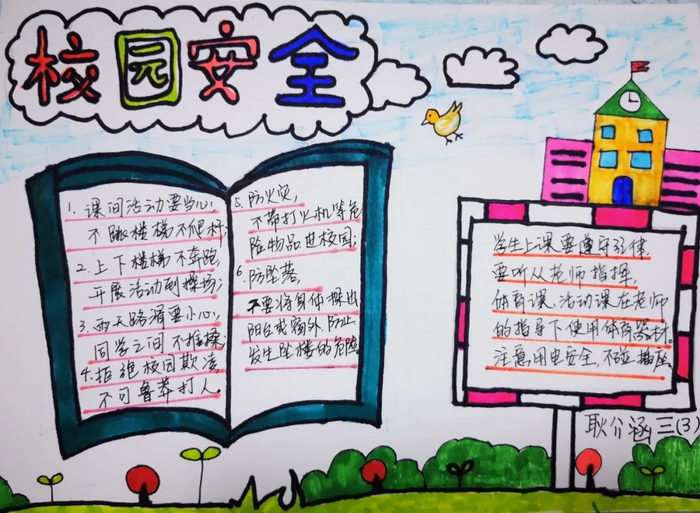 校园安全
1. 课间活动要当心,
不蹦楼梯不爬杆;
2. 上下楼梯不奔跑,
开展活动到操场;
3. 雨天路滑要小心,
同学之间不推搡;
4. 拒绝校园欺凌
不可鲁莽打人.
5. 防火灾,
不带打火机等危
险物品进校园;
6. 防坠落,
不要将身体探出
阳台或窗外,防止
发生坠楼的危险
学生上课要遵守纪律,
要听从老师指挥,
体育课、活动课在老师
的指导下使用体育器材.
注意用电安全,不碰插座
耿 涵 三(3)